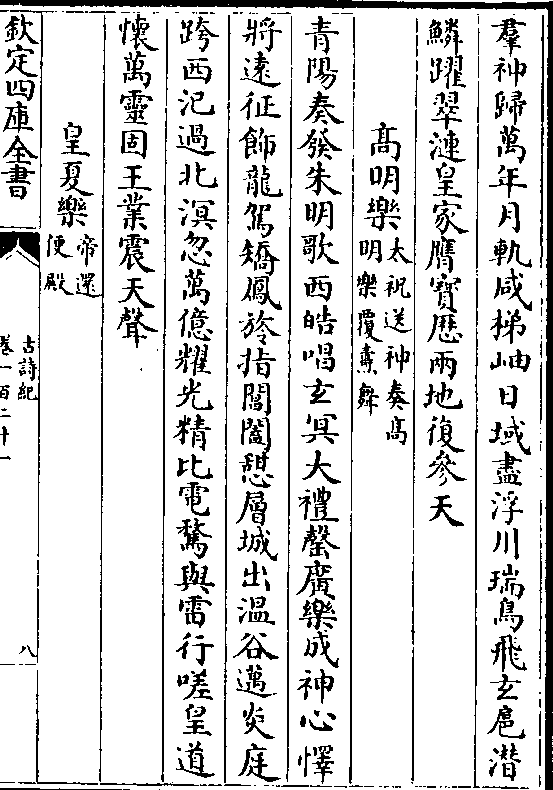 羣神歸萬年月軌咸梯岫日域盡浮川瑞鳥飛玄扈潛
鱗躍翠漣皇家膺寶厯兩地復參天
高明樂太祝送神奏高
明樂覆燾舞
青陽奏發朱明歌西皓唱玄冥大禮罄廣樂成神心懌
將遠征飾龍駕矯鳳旍指閶闔憩層城出溫谷邁炎庭
跨西汜過北溟忽萬億耀光精比電騖與雷行嗟皇道
懷萬靈固王業震天聲
皇夏樂帝還
便殿
欽定四庫全書
古詩紀
卷一百二十一
八